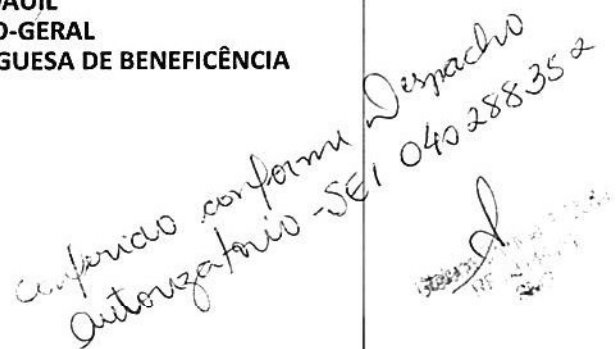 O-GERAL
GUESA DE BENEFICÊNCIA
conferido conforme Despacho
autorizatorio - SEI 040288352